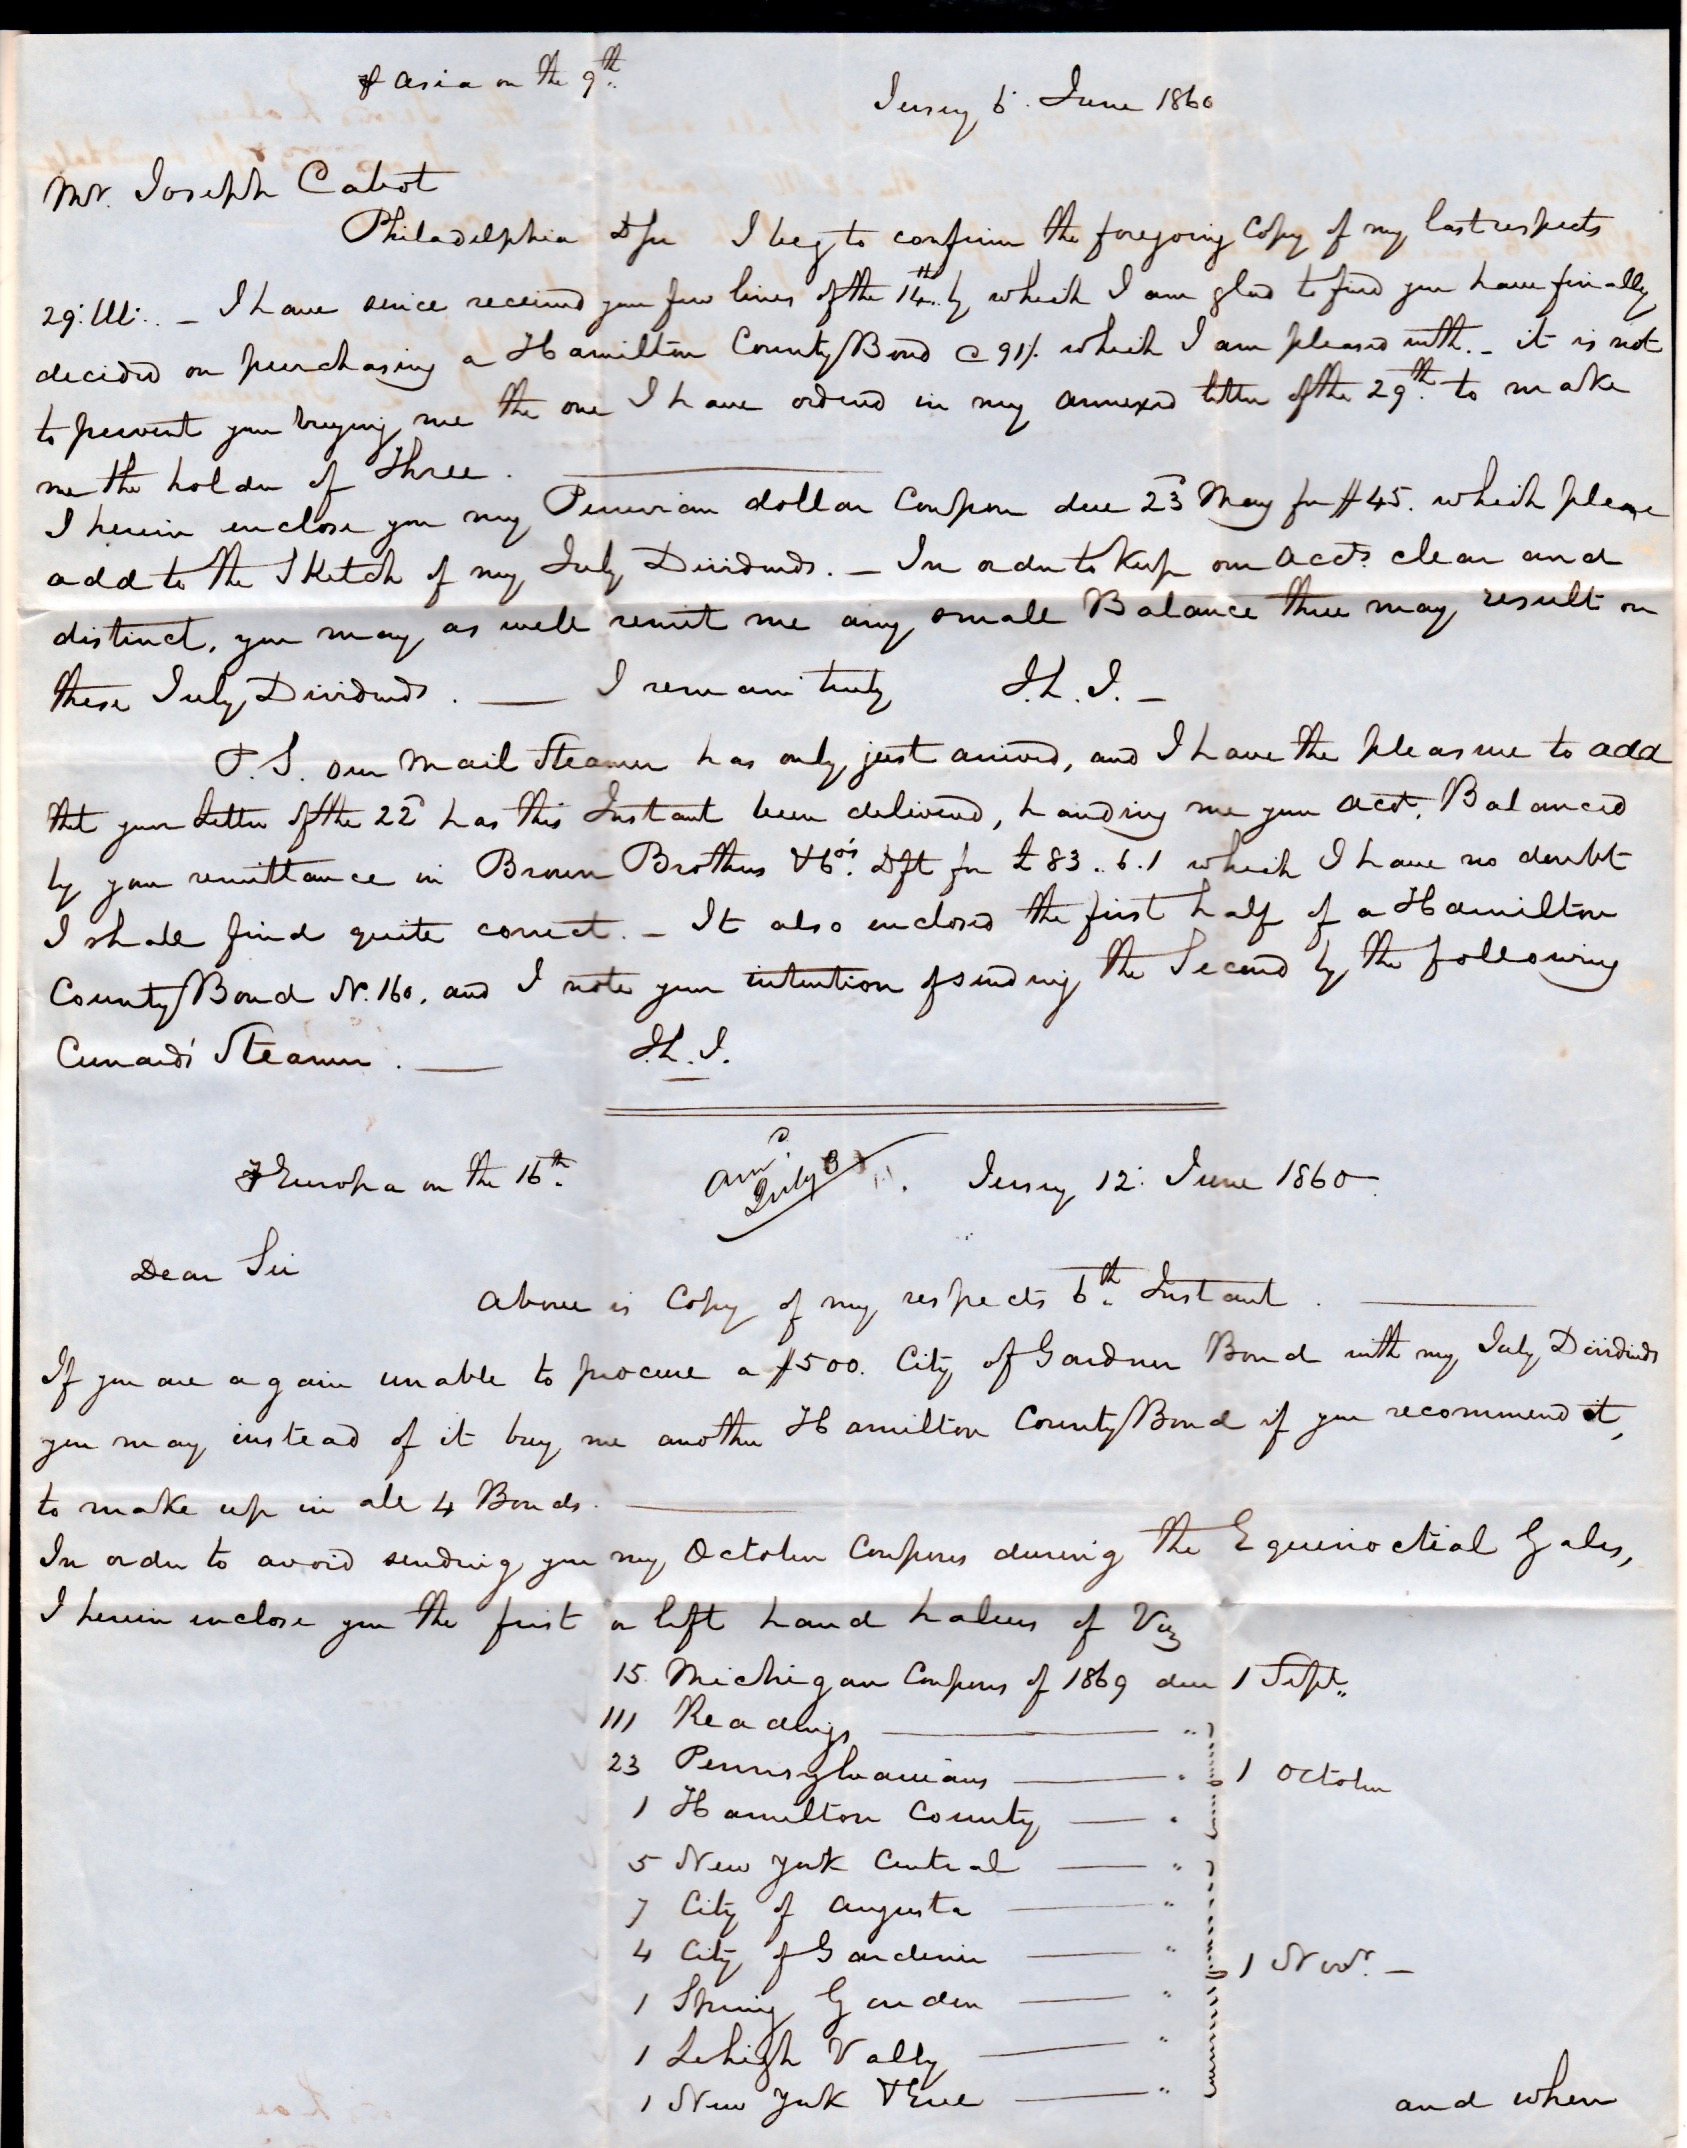 ℘ Asia on the 9th.
Jersey 6. June 1860
Mr. Joseph Cabot
Philadelphia Dsir I beg to confirm the foregoing Copy of my last respects
29. Ult. – I have since received your few lines of the 14th. by which I am glad to find you have finally
decided on purchasing a Hamilton County Bond @ 91% which I am pleased with. – it is not
to prevent your buying me the one I have ordered in my annexed letter of the 29th. to make
me the holder of Three.
I herein enclose you my Peruvian dollar Coupon due 23d May for $45. which please
add to the Sketch of my July Dividends. – In order to keep our Accts. clear and
distinct, you may as well remit me any small Balance there may result on
these July Dividends. — I remain truly J.L.J. –
P.S. Our Mail Steamer has only just arrived, and I have the pleasure to add
that your Letter of the 22d has this Instant been delivered, handing me your acct. Balanced
by your remittance in Brown Brothers & Co's. Dft for £83..6.1 which I have no doubt
I shall find quite correct. – It also enclosed the first half of a Hamilton
County Bond N. 160, and I note your intention of sending the Second by the following
Cunard's Steamer. — J.L.J.
℘ Europa on the 16th.
Ansd. July 3
Jersey 12. June 1860
Dear Sir
Above is Copy of my respects 6th. Instant. —
If you are again unable to procure a $500. City of Gardner Bond with my July Dividends
you may instead of it buy me another Hamilton County Bond if you recommend it,
to make up in all 4 Bonds. —
In order to avoid sending you my October Coupons during the Equinoctial Gales,
I herein enclose you the first or left hand halves of Viz
15 Michigan Coupons of 1869 due 1 Sept.
111 Readings — "
23 Pennsylvanians — " 1 October
1 Hamilton County — "
5 New York Central — "
7 City of Augusta — "
4 City of Gardiner — "
1 Novr. –
1 Spring Garden — "
1 Lehigh Vally — "
1 New York & Erie — "
and when